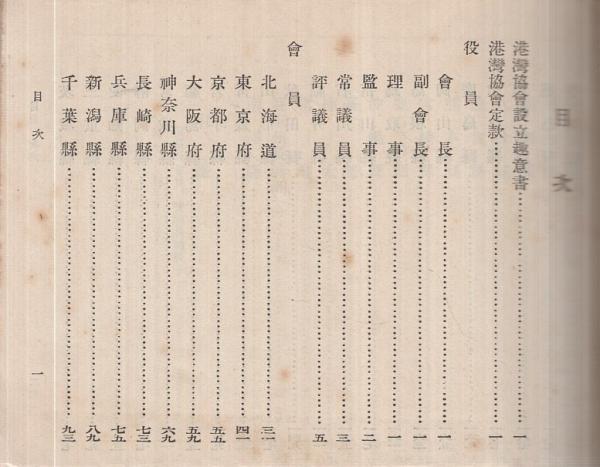 目次
港灣協會設立趣意書……一
港灣協會定款……一
役員
會長……一
副會長……一
理事……一
監事……二
常議員……三
評議員……五
會員
北海道……三一
東京府……四一
京都府……五五
大阪府……五九
神奈川縣……六九
長崎縣……七三
兵庫縣……七五
新潟縣……八九
千葉縣……九三
目次 一